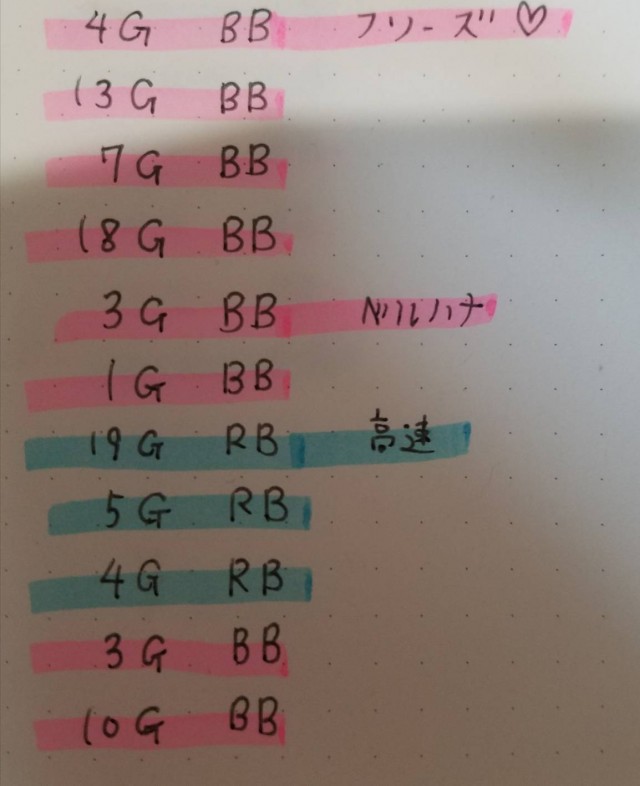 4G BB フリーズ♡
13G BB
7G BB
18G BB
3G BB
1G BB
19G RB 高速
5G RB
4G RB
3G BB
10G BB